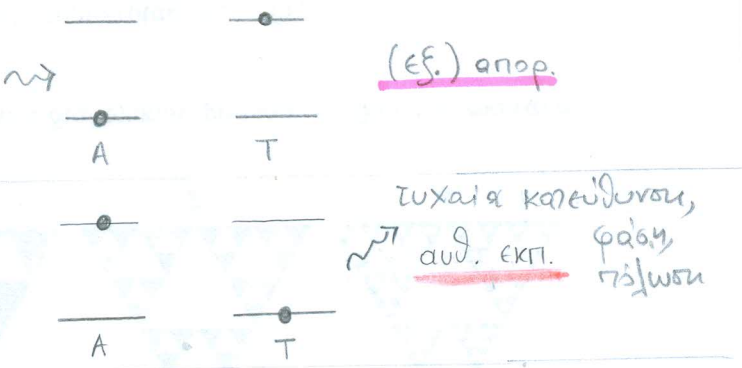 (εξ.) απορ.
Α Τ
τυχαία κατεύθυνση,
αυθ. εκπ. φάση,
πόλωση
Α Τ